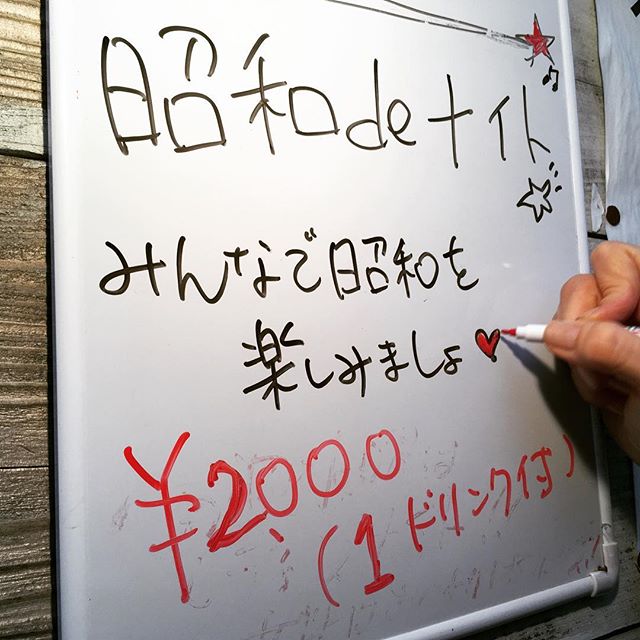 昭和deナイト
みんなで昭和を
楽しみましょ
¥2,000
(1ドリンク付)